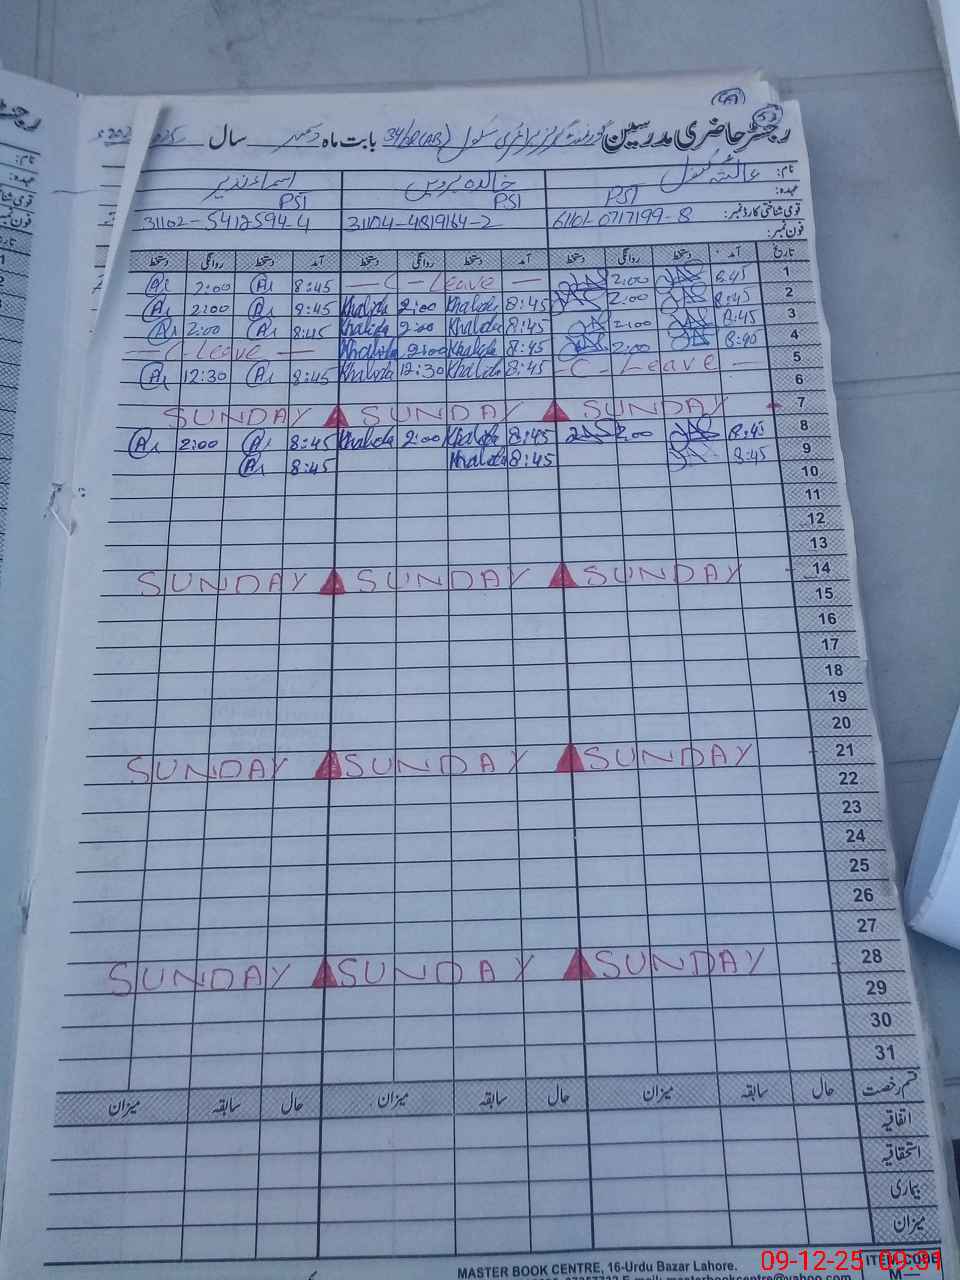 49
52
رجسٹر حاضری مدرسین گورنمنٹ گرلز پرائمری سکول 34/BC(AB) بابت ماہ دسمبر سال 2025
نام: عائشہ کنول خالدہ پروین اسماء نذیر
عہدہ: PSI PSI PSI
قومی شناختی کارڈ نمبر: 61101-0717199-8 31104-4819164-2 31102-5412594-4
فون نمبر:
تاریخ آمد دستخط روانگی دستخط آمد دستخط روانگی دستخط آمد دستخط روانگی دستخط
1 8:45 2:00 — C - Leave — 8:45 2:00
2 8:45 2:00 8:45 Khalida 2:00 Khalida 8:45 2:00
3 8:45 2:00 8:45 Khalida 2:00 Khalida 8:45 2:00
4 8:45 2:00 8:45 Khalida 2:00 Khalida — C - Leave —
5 — C - Leave — 8:45 Khalida 12:30 Khalida 8:45 12:30
6
7 SUNDAY SUNDAY SUNDAY
8 8:45 2:00 8:45 Khalida 2:00 Khalida 8:45 2:00
9 8:45 8:45 Khalida 8:45
10
11
12
13
14 SUNDAY SUNDAY SUNDAY
15
16
17
18
19
20
21 SUNDAY SUNDAY SUNDAY
22
23
24
25
26
27
28 SUNDAY SUNDAY SUNDAY
29
30
31
قسم رخصت حال سابقہ میزان حال سابقہ میزان حال سابقہ میزان
اتفاقیہ
استحقاقیہ
بیماری
میزان
ITEM CODE
MASTER BOOK CENTRE, 16-Urdu Bazar Lahore.
09-12-25 09:31